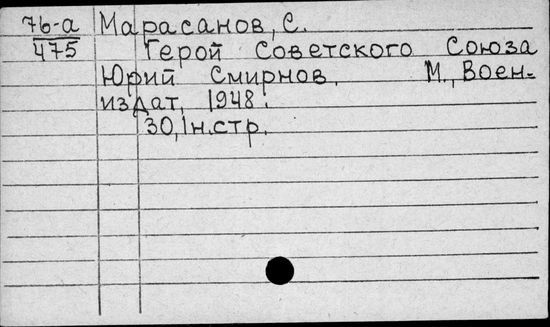 76-а Марасанов, С.
475 Герой Советского Союза
Юрий Смирнов. М., Воен-
издат, 1948.
30, 1 н. стр.